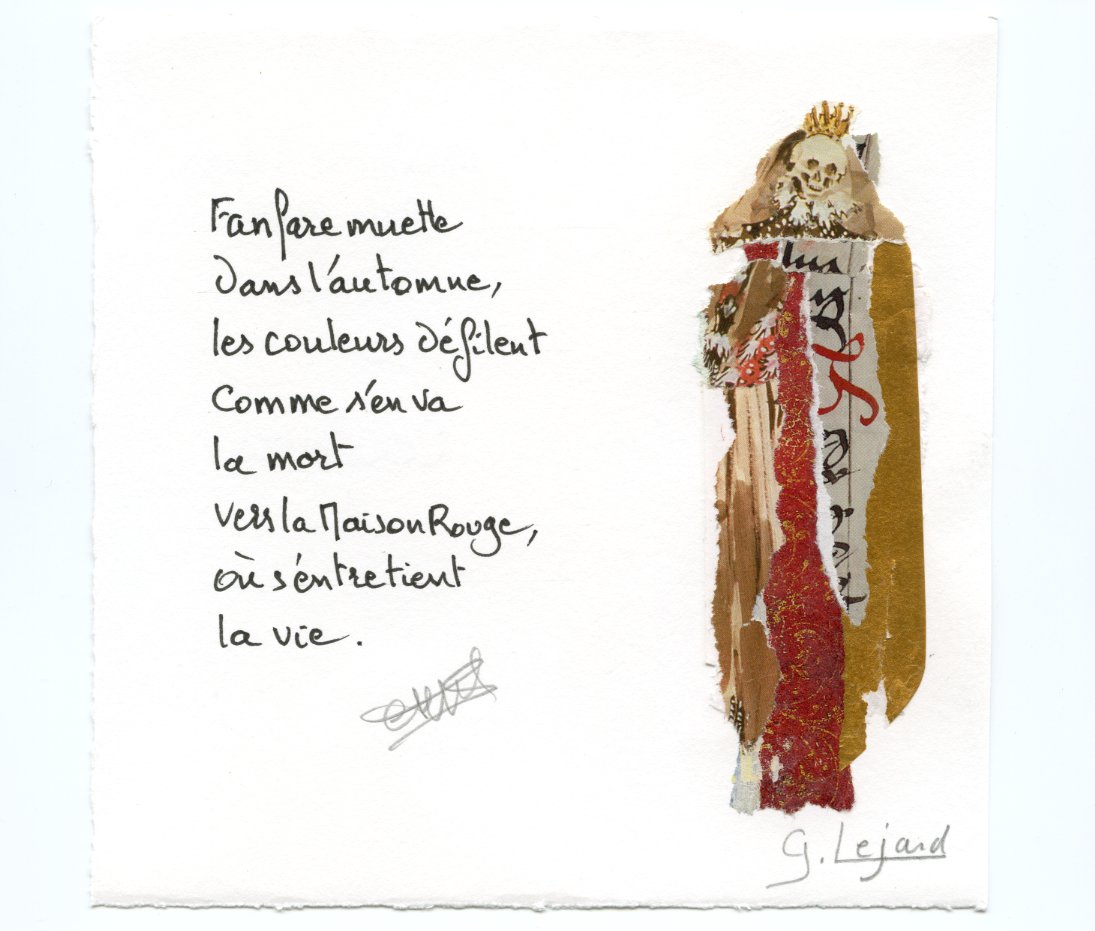 Fanfare muette
Dans l'automne,
les couleurs défilent
Comme s'en va
la mort
vers la Maison Rouge,
où s'entretient
la vie.
G. Lejard